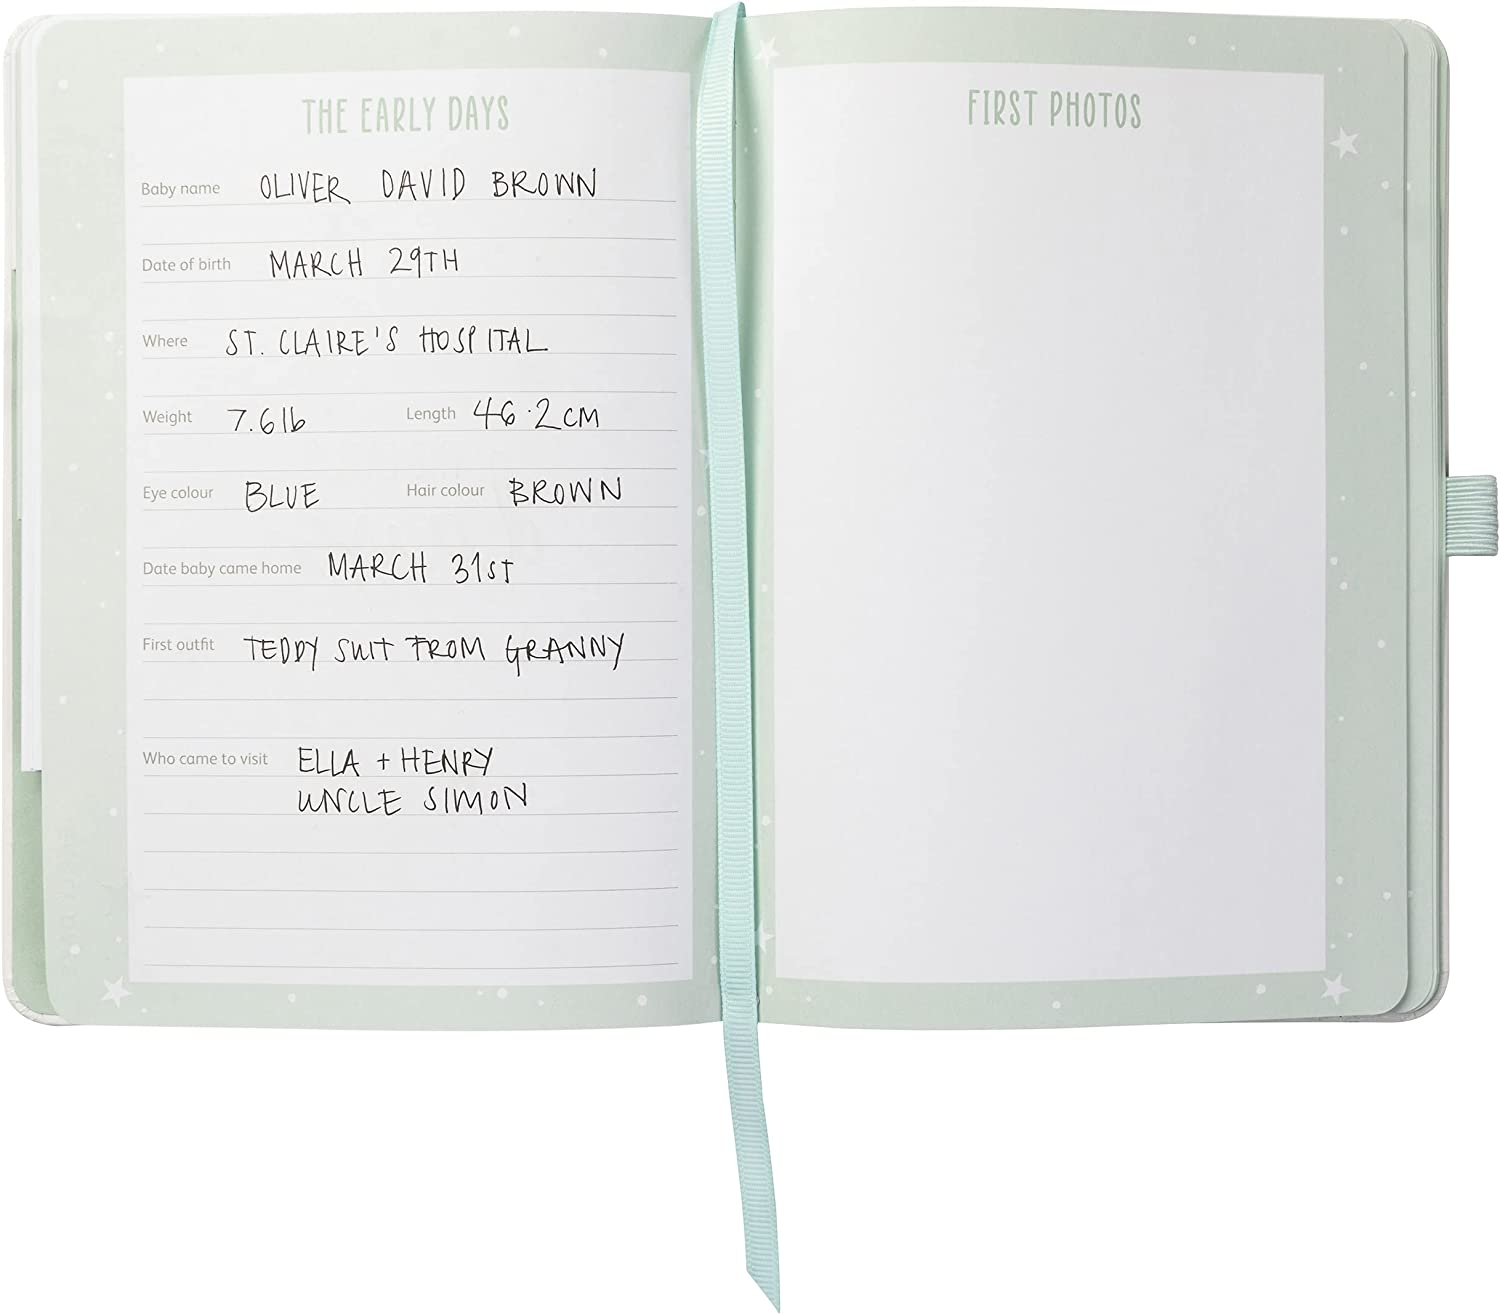 THE EARLY DAYS
Baby name OLIVER DAVID BROWN
Date of birth MARCH 29TH
Where ST. CLAIRE'S HOSPITAL
Weight 7.6lb Length 46.2CM
Eye colour BLUE Hair colour BROWN
Date baby came home MARCH 31ST
First outfit TEDDY SUIT FROM GRANNY
Who came to visit ELLA + HENRY
UNCLE SIMON
FIRST PHOTOS